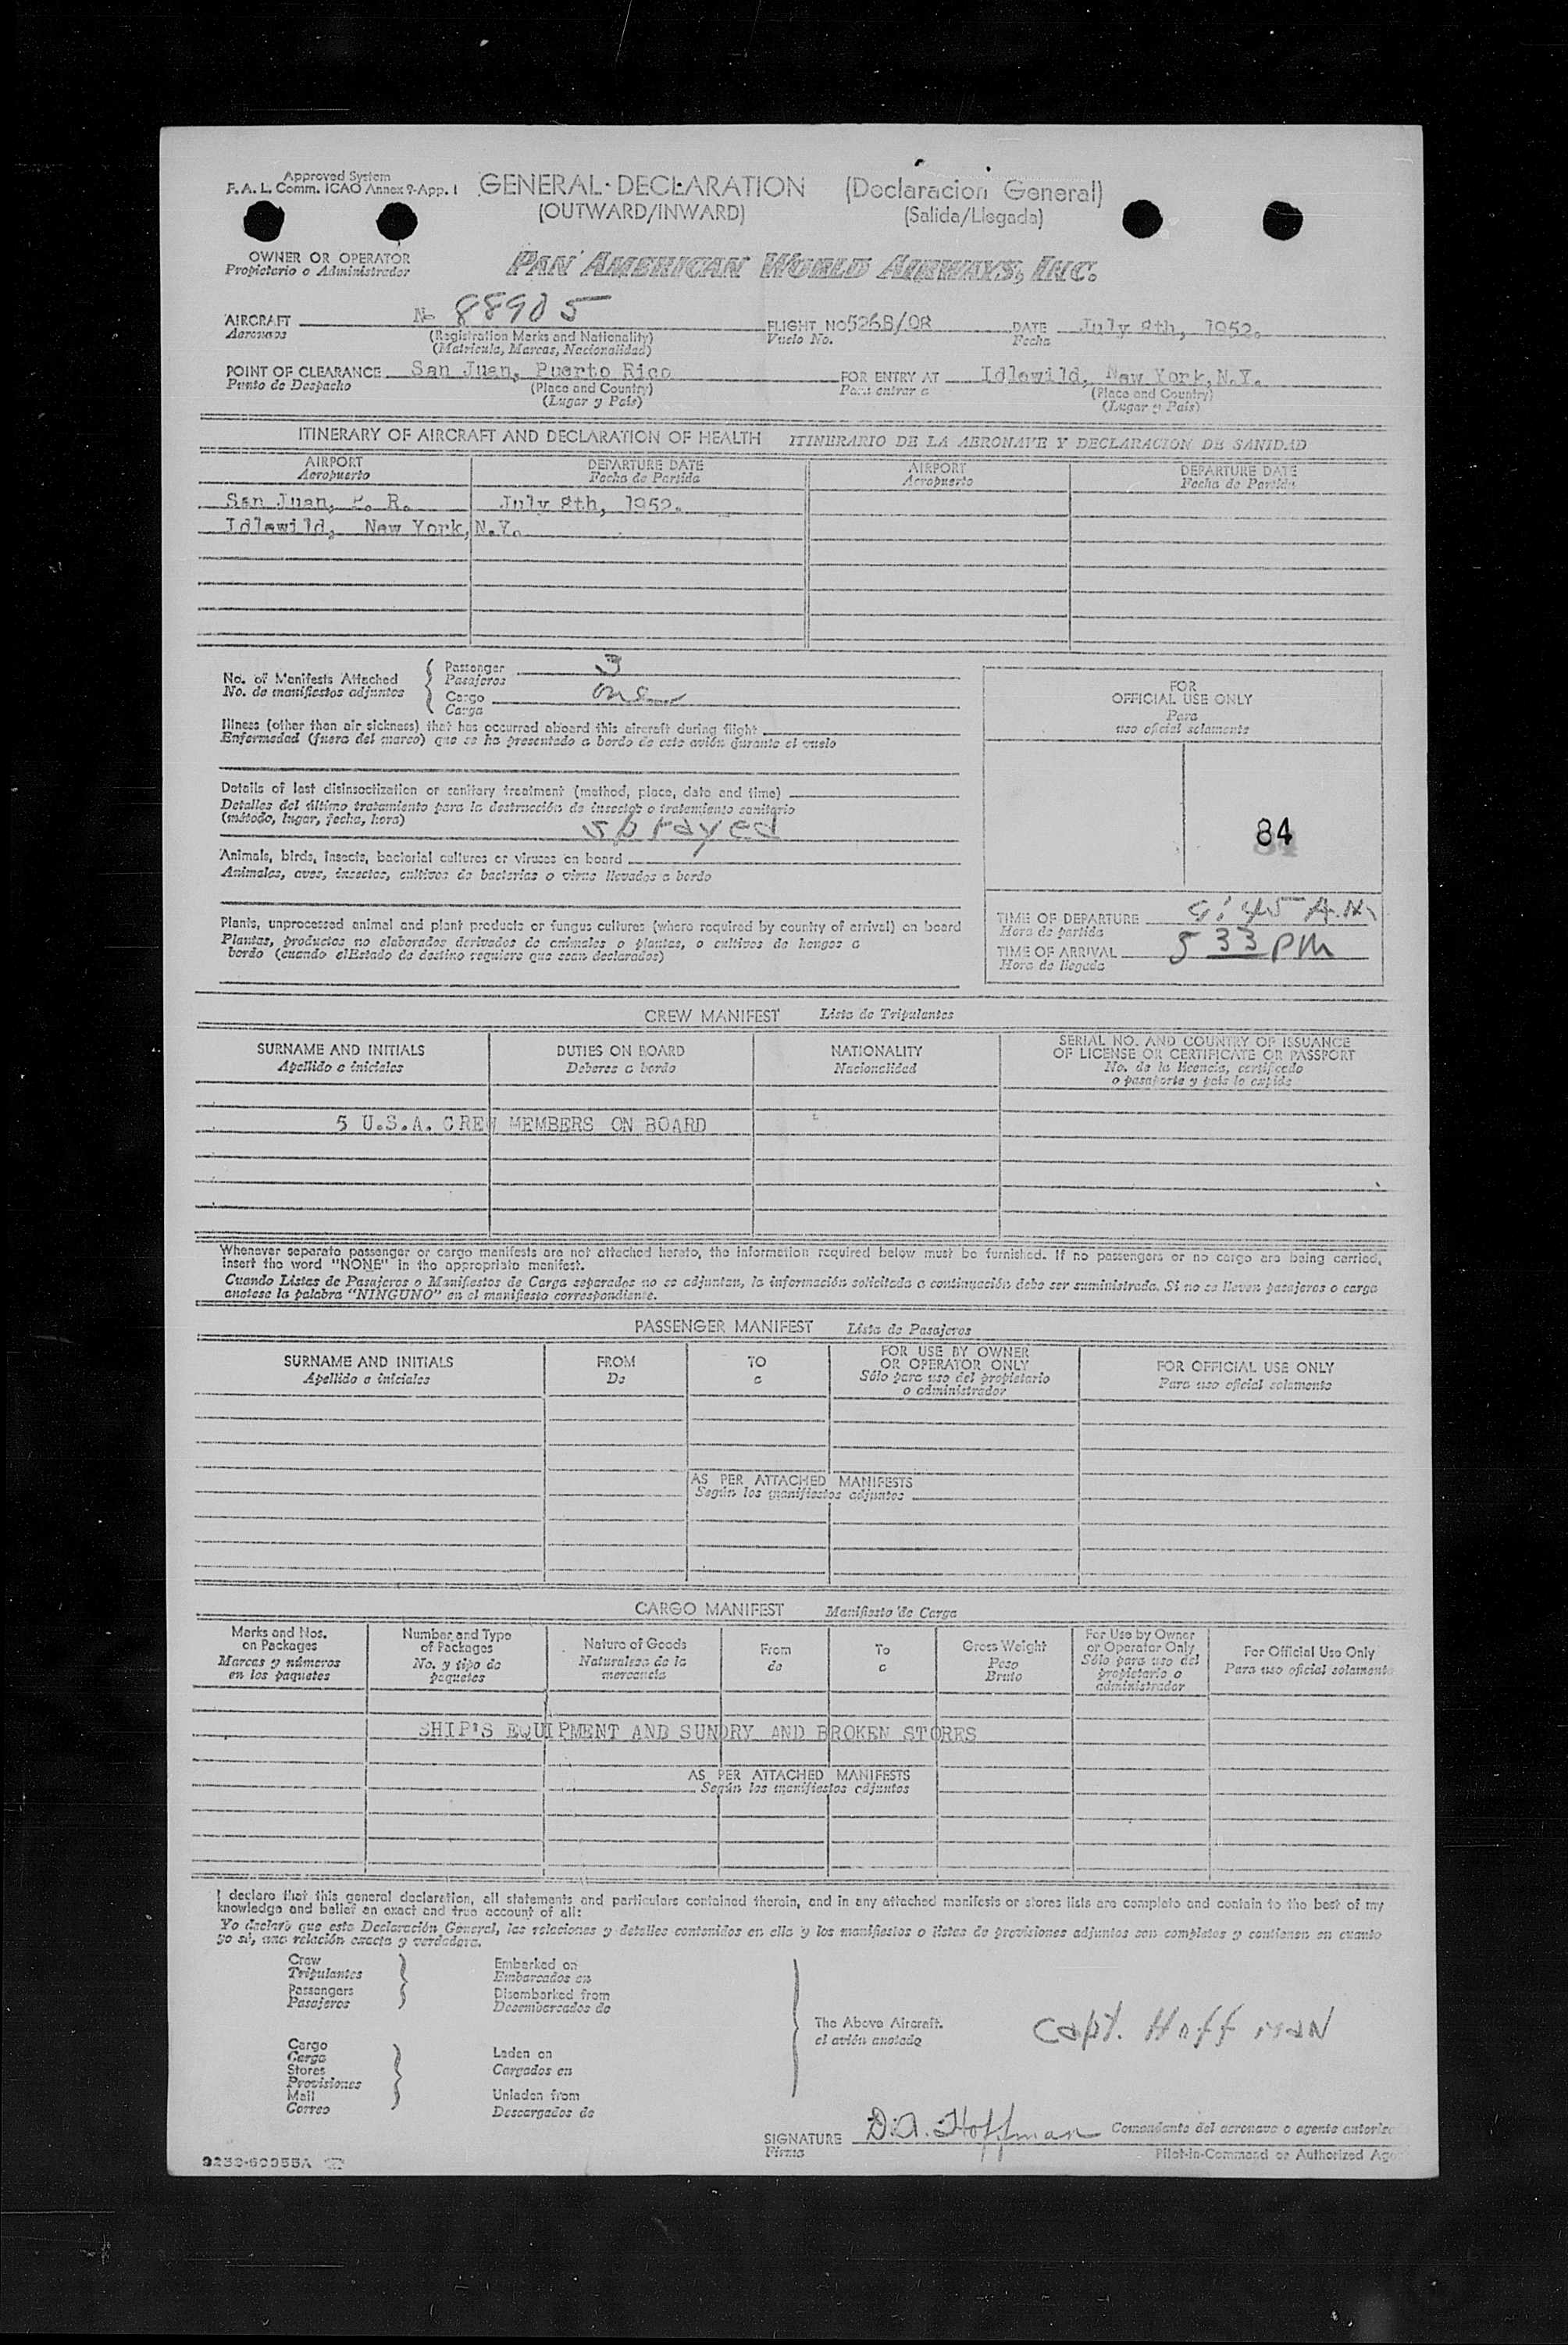 Approved System
F. A. L. Comm. ICAO Annex 9-App. 1
GENERAL DECLARATION (Declaracion General)
(OUTWARD/INWARD) (Salida/Llegada)
OWNER OR OPERATOR
Propietario o Administrador
PAN AMERICAN WORLD AIRWAYS, INC.
AIRCRAFT No 88905 FLIGHT NO 526B/08 DATE July 8th, 1952.
Aeronave (Registration Marks and Nationality) Vuelo No. Fecha
(Matricula, Marcas, Nacionalidad)
POINT OF CLEARANCE San Juan, Puerto Rico FOR ENTRY AT Idlewild, New York, N.Y.
Punto de Despacho (Place and Country) Para entrar a (Place and Country)
(Lugar y Pais) (Lugar y Pais)
ITINERARY OF AIRCRAFT AND DECLARATION OF HEALTH ITINERARIO DE LA AERONAVE Y DECLARACION DE SANIDAD
AIRPORT DEPARTURE DATE AIRPORT DEPARTURE DATE
Aeropuerto Fecha de Partida Aeropuerto Fecha de Partida
San Juan, P. R. July 8th, 1952.
Idlewild, New York, N.Y.
No. of Manifests Attached
No. de manifiestos adjuntos
Passenger 3
Pasajeros
Cargo one
Carga
Illness (other than air sickness) that has occurred aboard this aircraft during flight
Enfermedad (fuera del mareo) que se ha presentado a bordo de este avión durante el vuelo
Details of last disinsectization or sanitary treatment (method, place, date and time)
Detalles del último tratamiento para la destrucción de insectos o tratamiento sanitario
(método, lugar, fecha, hora)
sprayed
Animals, birds, insects, bacterial cultures or viruses on board
Animales, aves, insectos, cultivos de bacterias o virus llevados a bordo
Plants, unprocessed animal and plant products or fungus cultures (where required by country of arrival) on board
Plantas, productos no elaborados derivados de animales o plantas, o cultivos de hongos a
bordo (cuando el Estado de destino requiere que sean declarados)
FOR
OFFICIAL USE ONLY
Para
uso oficial solamente
84
TIME OF DEPARTURE 9:45 A.M.
Hora de partida
TIME OF ARRIVAL 5 33 PM
Hora de llegada
CREW MANIFEST Lista de Tripulantes
SURNAME AND INITIALS DUTIES ON BOARD NATIONALITY SERIAL NO. AND COUNTRY OF ISSUANCE
OF LICENSE OR CERTIFICATE OR PASSPORT
Apellido e iniciales Deberes a bordo Nacionalidad No. de la licencia, certificado
o pasaporte y pais lo expide
5 U.S.A. CREW MEMBERS ON BOARD
Whenever separate passenger or cargo manifests are not attached hereto, the information required below must be furnished. If no passengers or no cargo are being carried,
insert the word "NONE" in the appropriate manifest.
Cuando Listas de Pasajeros o Manifiestos de Carga separados no se adjuntan, la información solicitada a continuación debe ser suministrada. Si no se lleven pasajeros o carga
anotese la palabra "NINGUNO" en el manifiesto correspondiente.
PASSENGER MANIFEST Lista de Pasajeros
SURNAME AND INITIALS FROM TO FOR USE BY OWNER
OR OPERATOR ONLY FOR OFFICIAL USE ONLY
Apellido e iniciales De a Sólo para uso del propietario
o administrador Para uso oficial solamente
AS PER ATTACHED MANIFESTS
Según los manifiestos adjuntos
CARGO MANIFEST Manifiesto de Carga
Marks and Nos.
on Packages
Marcas y números
en los paquetes
Number and Type
of Packages
No. y tipo de
paquetes
Nature of Goods
Naturaleza de la
mercancia
From
de
To
a
Gross Weight
Peso
Bruto
For Use by Owner
or Operator Only
Sólo para uso del
propietario o
administrador
For Official Use Only
Para uso oficial solamente
SHIP'S EQUIPMENT AND SUNDRY AND BROKEN STORES
AS PER ATTACHED MANIFESTS
Según los manifiestos adjuntos
I declare that this general declaration, all statements and particulars contained therein, and in any attached manifests or stores lists are complete and contain to the best of my
knowledge and belief an exact and true account of all:
Yo declaro que esta Declaración General, las relaciones y detalles contenidos en ella y los manifiestos o listas de provisiones adjuntos son completos y contienen en cuanto
yo sé, una relación exacta y verdadera.
Crew
Tripulantes
Passengers
Pasajeros
Embarked on
Embarcados en
Disembarked from
Desembarcados de
Cargo
Carga
Stores
Provisiones
Mail
Correo
Laden on
Cargados en
Unladen from
Descargados de
The Above Aircraft.
el avión anotado
Capt. Hoffman
SIGNATURE D.A. Hoffman Comandante del aeronave o agente autoriza
Firma Pilot-in-Command or Authorized Age